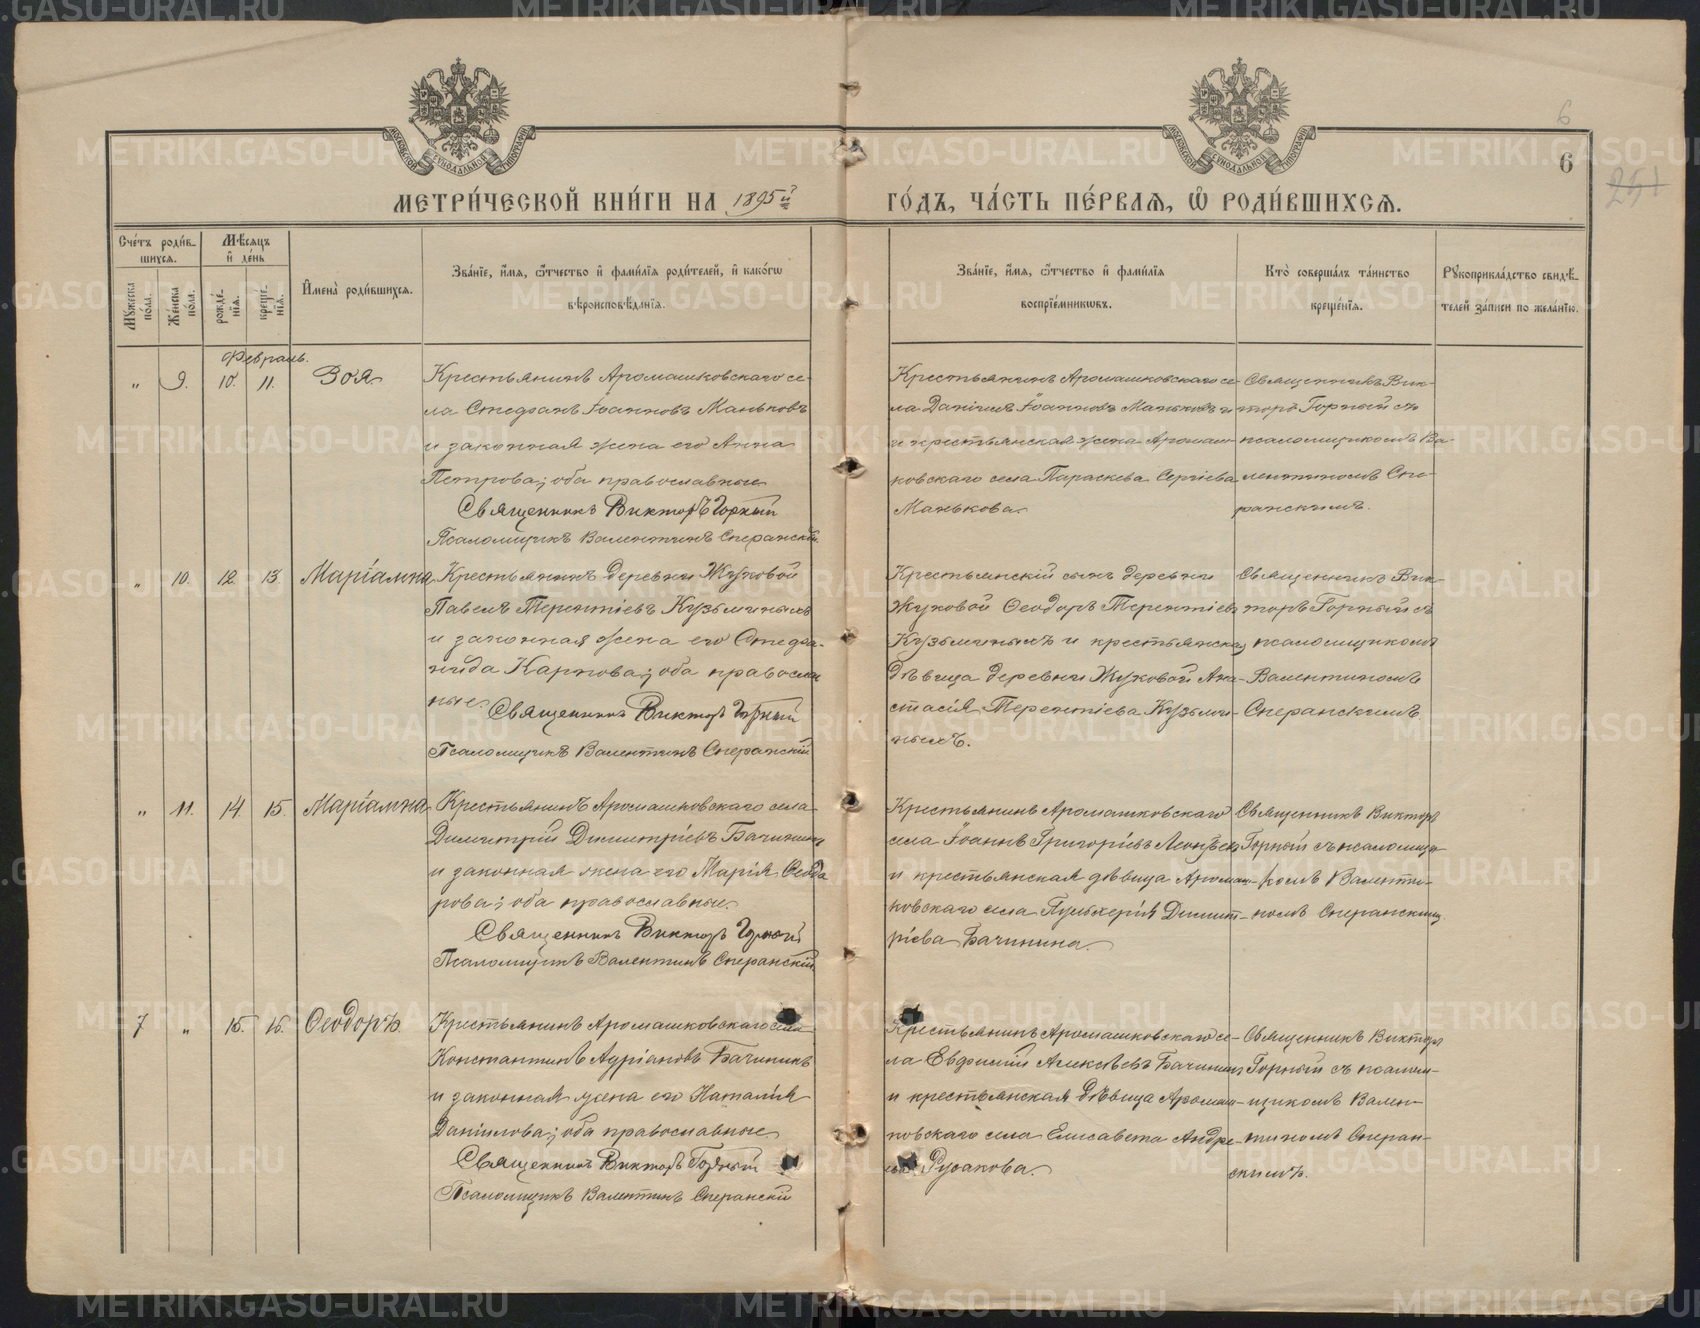 6
6
251
МЕТРИ́ЧЕСКОЙ КНИ́ГИ НА 1895й ГО́ДЪ, ЧА́СТЬ ПЕ́РВАЯ, Ѽ РОДИ́ВШИХСЯ.
Сче́тъ роди́в-
шихся.
Мѣсяцъ
и҆ де́нь
Мꙋжеска по́ла.
Же́нска по́ла.
рожде́-
нїѧ.
креще́-
нїѧ.
И҆мена̀ роди́вшихся.
Зва́нїе, и҆мя, ѻ҆́тчество и҆ фами́лїя роди́телей, и҆ како́гѡ
вѣроисповѣ́данїя.
Зва́нїе, и҆мя, ѻ҆́тчество и҆ фами́лїя
воспрїе́мникѡвъ.
Кто̀ соверша́лъ та́инство
креще́нїя.
Рꙋкоприкла́дство свидѣ́-
телей за́писи по жела́нїю.
Февраль.
" 9. 10. 11. Зоя
Крестьянинъ Аромашковскаго се-
ла Стефанъ Іоанновъ Маньковъ
и законная жена его Анна
Петрова; оба православные
Священникъ Викторъ Горный
Псаломщикъ Валентинъ Сперанскій
Крестьянинъ Аромашковскаго се-
ла Даніилъ Іоанновъ Маньковъ и
и крестьянская жена Аромаш-
ковскаго села Параскева Сергіева
Манькова.
Священникъ Вик-
торъ Горный съ
псаломщикомъ Ва-
лентиномъ Спе-
ранскимъ.
" 10. 12. 13. Маріамна
Крестьянинъ деревни Жуковой
Павелъ Терентіевъ Кузьминыхъ
и законная жена его Стефа-
нида Карпова; оба православ
ные
Священникъ Викторъ Горный
Псаломщикъ Валентинъ Сперанскій
Крестьянскій сынъ деревни
Жуковой Ѳеодоръ Терентіевъ
Кузьминыхъ и крестьянская
дѣвица деревни Жуковой Ана-
стасія Терентіева Кузьми-
ныхъ.
Священникъ Вик-
торъ Горный съ
псаломщикомъ
Валентиномъ
Сперанскимъ
" 11. 14. 15. Маріамна
Крестьянинъ Аромашковскаго села
Димитрій Димитріевъ Бачининъ
и законная жена его Марія Ѳеодо
рова; оба православные.
Священникъ Викторъ Горный
Псаломщикъ Валентинъ Сперанскій
Крестьянинъ Аромашковскаго
села Іоаннъ Григоріевъ
и крестьянская дѣвица Аромаш-
ковскаго села Пульхерія Димит-
ріева Бачинина.
Священникъ Викторъ
Горный съ псаломщи-
комъ Валенти-
номъ Сперанскимъ
7 " 15. 16. Ѳеодоръ.
Крестьянинъ Аромашковскаго села
Константинъ Адріановъ Бачининъ
и законная жена его Наталія
Даніилова; оба православные
Священникъ Викторъ Горный
Псаломщикъ Валентинъ Сперанскій
Крестьянинъ Аромашковскаго се-
ла Евфимій Алексѣевъ Бачининъ
и крестьянская дѣвица Аромаш-
ковскаго села Елисавета Андре-
Русакова.
Священникъ Викторъ
Горный съ псалом-
щикомъ Вален-
тиномъ Сперан-
скимъ.